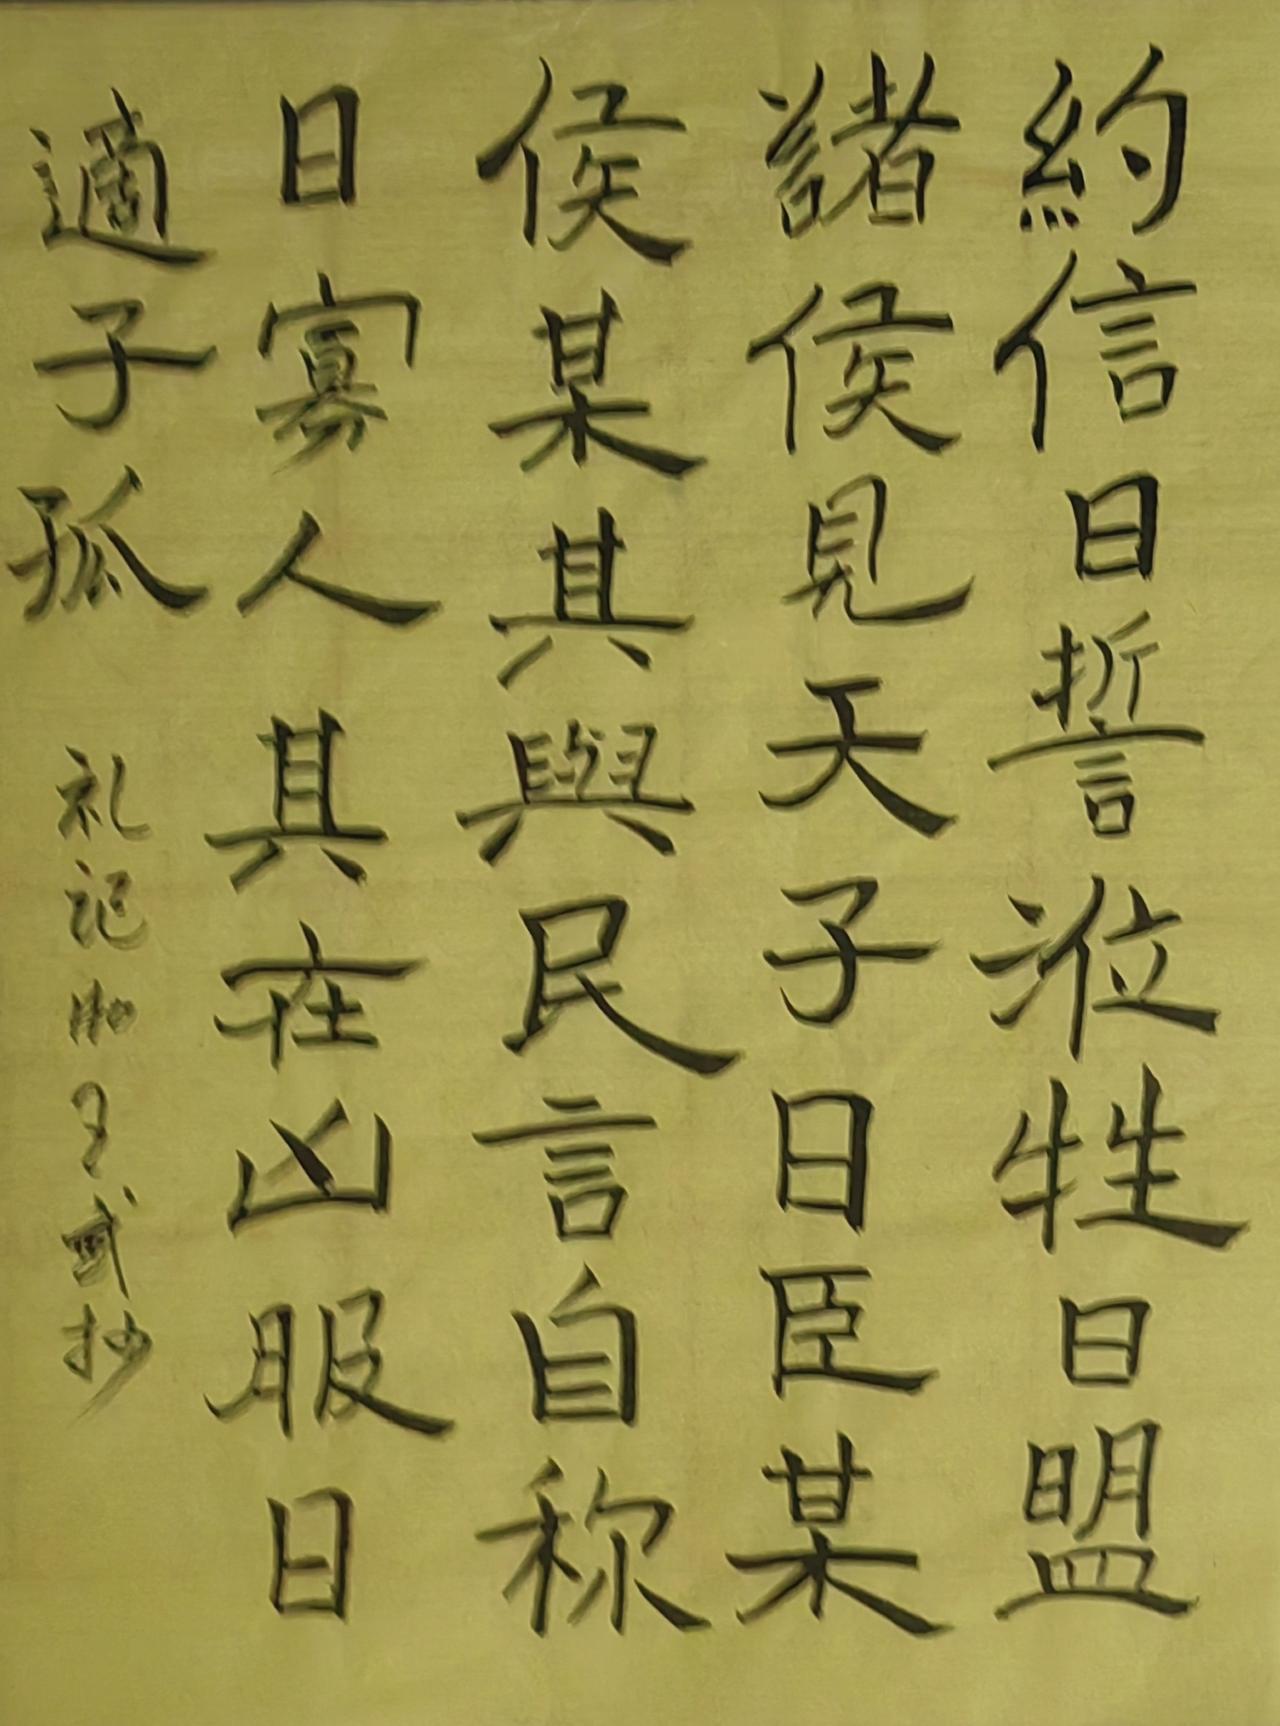 約信日誓涖牲日盟
諸侯見天子日臣某
侯某其與民言自称
日寡人其在凶服日
適子孤
礼记
抄